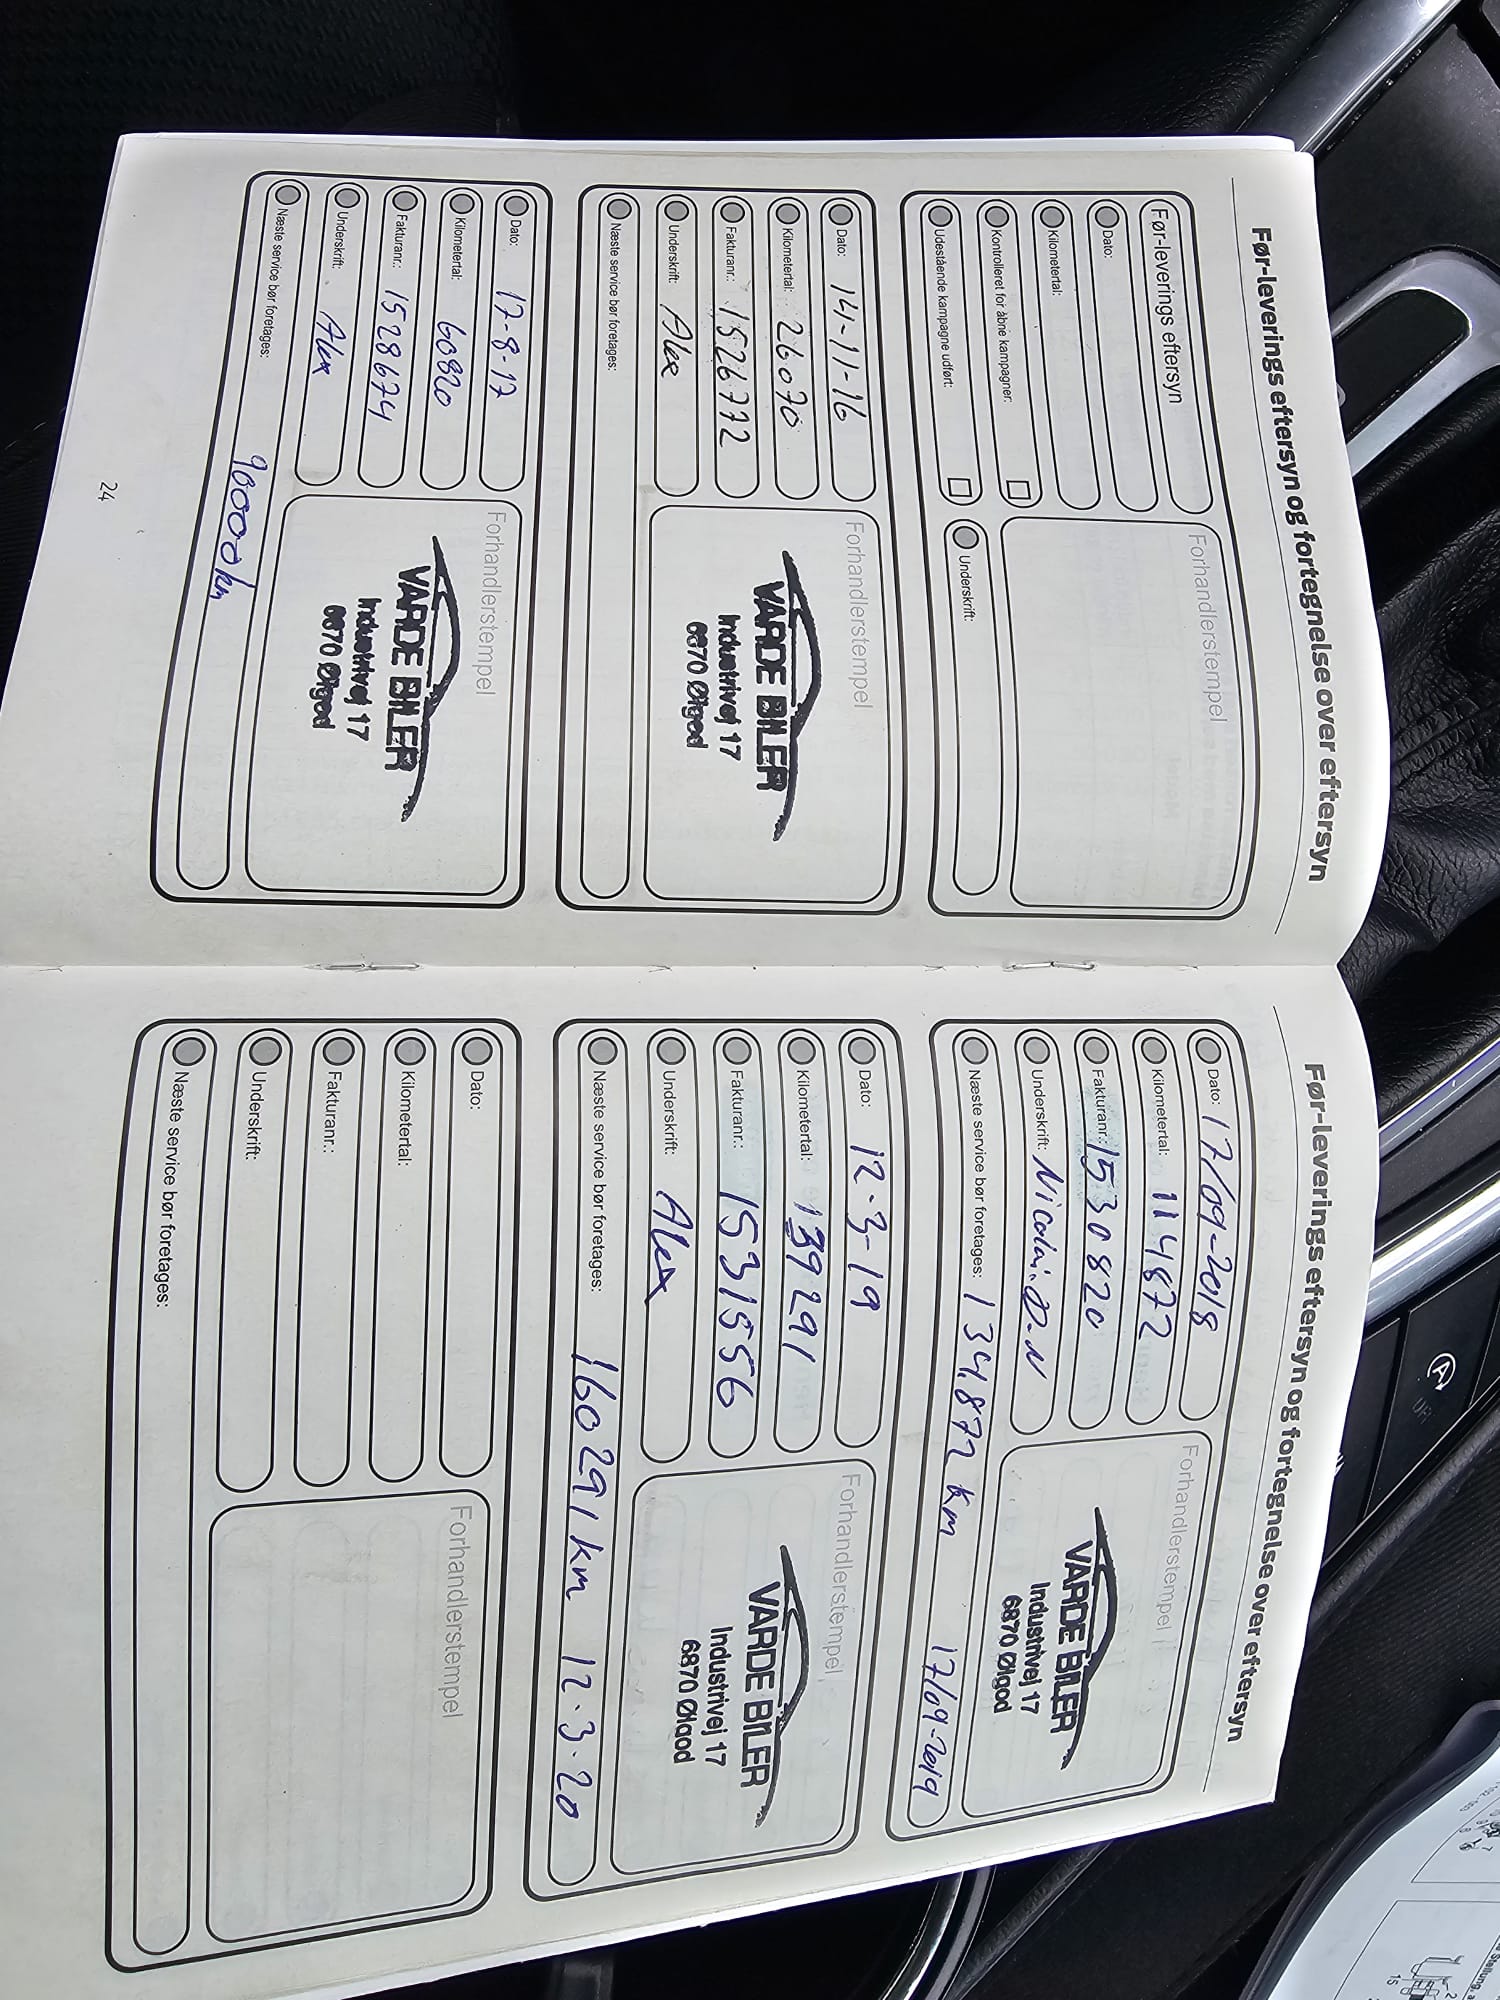 Før-leverings eftersyn og fortegnelse over eftersyn
Før-leverings eftersyn
Dato:
Kilometertal:
Kontrolleret for åbne kampagner:
Udestående kampagne udført:
Forhandlerstempel
Underskrift:
Dato: 14-11-16
Kilometertal: 26070
Fakturanr.: 1526772
Underskrift: Alex
Næste service bør foretages:
Forhandlerstempel
VARDE BILER
Industrivej 17
6870 Ølgod
Dato: 17-8-17
Kilometertal: 60820
Fakturanr.: 1528674
Underskrift: Alex
Næste service bør foretages: 90000 km
Forhandlerstempel
VARDE BILER
Industrivej 17
6870 Ølgod
24
Før-leverings eftersyn og fortegnelse over eftersyn
Dato: 17/09-2018
Kilometertal: 114872
Fakturanr.: 1530820
Underskrift: Nicolai.D.N
Næste service bør foretages: 134,872 km 17/09-2019
Forhandlerstempel
VARDE BILER
Industrivej 17
6870 Ølgod
Dato: 12.3-19
Kilometertal: 139291
Fakturanr.: 1531556
Underskrift: Alex
Næste service bør foretages: 160291 km 12.3.20
Forhandlerstempel
VARDE BILER
Industrivej 17
6870 Ølgod
Dato:
Kilometertal:
Fakturanr.:
Underskrift:
Næste service bør foretages:
Forhandlerstempel